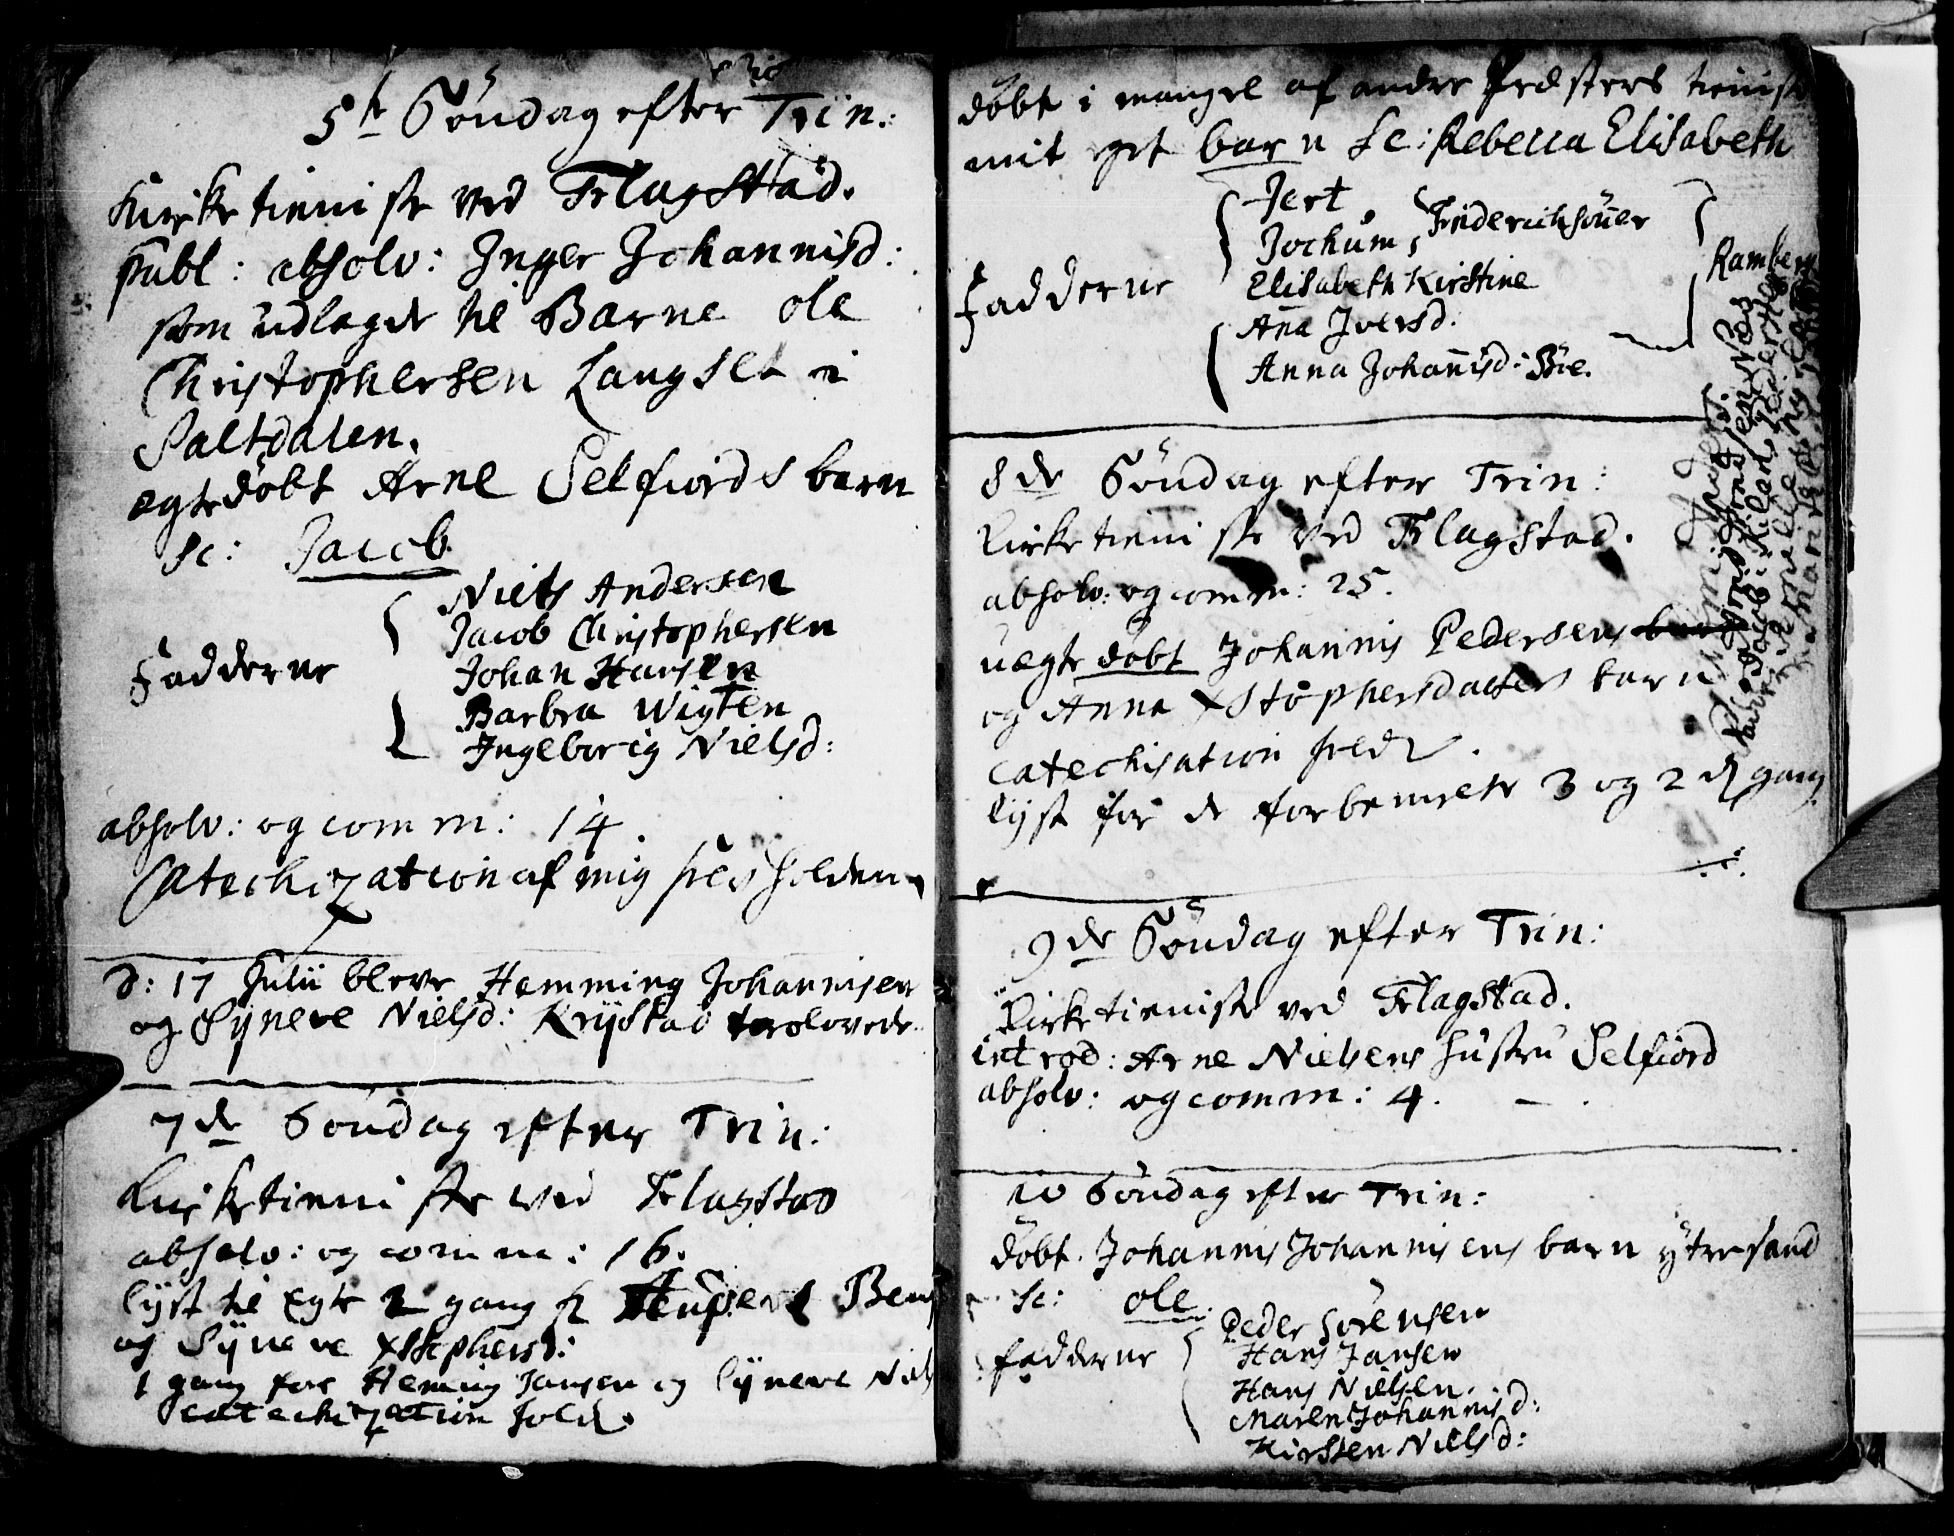 5te Söndag efter Trin:
Kirketieniste ved Flagstad.
publ: absolv: Inger Johannisd:
som udlagde til Barne Ole
Christophersen Langset i
Saltdalen.
ægte döbt Arne Selfiords barn
Sc: Jacob
Niels Andersen
Jacob Christophersen
Fadderne
Johan Hansen
Barbra Wigten
Ingeborig Nielsd:
absolv: og comm: 14.
Catechization af mig holden
d: 17 Julii bleve Hemming Johannisen
og Syneve Nielsd: Krystad trolovede
7de Söndag efter Trin:
Kirketieniste ved Flagstad
absolv: og comm: 16.
lyst til Egte 2 gang
og Syneve Xstophersd:
1 gang for Heming Jansen og Syneve Niels
catechization hold.
döbt i mangel af andre Præsters tienist
mit eget barn Sc: Rebecca Elisabeth
Jert
Jochum, Friderichsöner
Fadderne
Elisabeth Kirstine
Ramberg
Ana Iversd.
Anna Johannisd: Böe.
8de Söndag efter Trin:
Kirketieniste ved Flagstad.
absolv: og comm: 25.
uægte döbt Johannis Pedersens
og Anna Xstophersdatters barn
catechisation
lyst for de forbemelte 3 og 2 gang
9de Söndag efter Trin:
Kirketieniste ved Flagstad.
introd: Arne Nielsens hustru Selfiord
absolv: og comm: 4.
10 Söndag efter Trin:
döbt. Johannis Johannisens barn ytresand
Sc: Ole
Peder Sörensen
fadderne
Hans Jansen
Hans Nielsen.
Maren Johannisd:
Kirsten Nielsd: